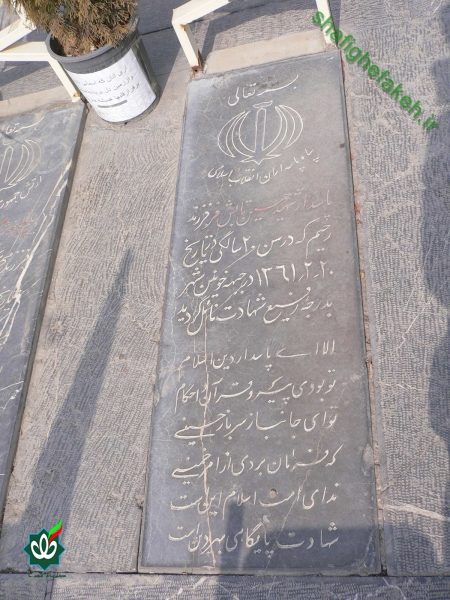 بسمه تعالی
سپاه پاسداران انقلاب اسلامی
پاسدار شهید حسین تابش فر فرزند
رحیم که در سن ۲۰ سالگی در تاریخ
۱۳۶۱.۲.۲۰ در جبهه خونین شهر
بدرجه رفیع شهادت نائل گردید
الا ای پاسدار دین اسلام
تو بودی پیرو قرآن و احکام
تو ای جانباز سرباز حسینی
که فرمان بردی از امر خمینی
ندای امت اسلام این است
شهادت پایگاهی بهر دین است
بسمه تعالی
shafighefakeh.ir